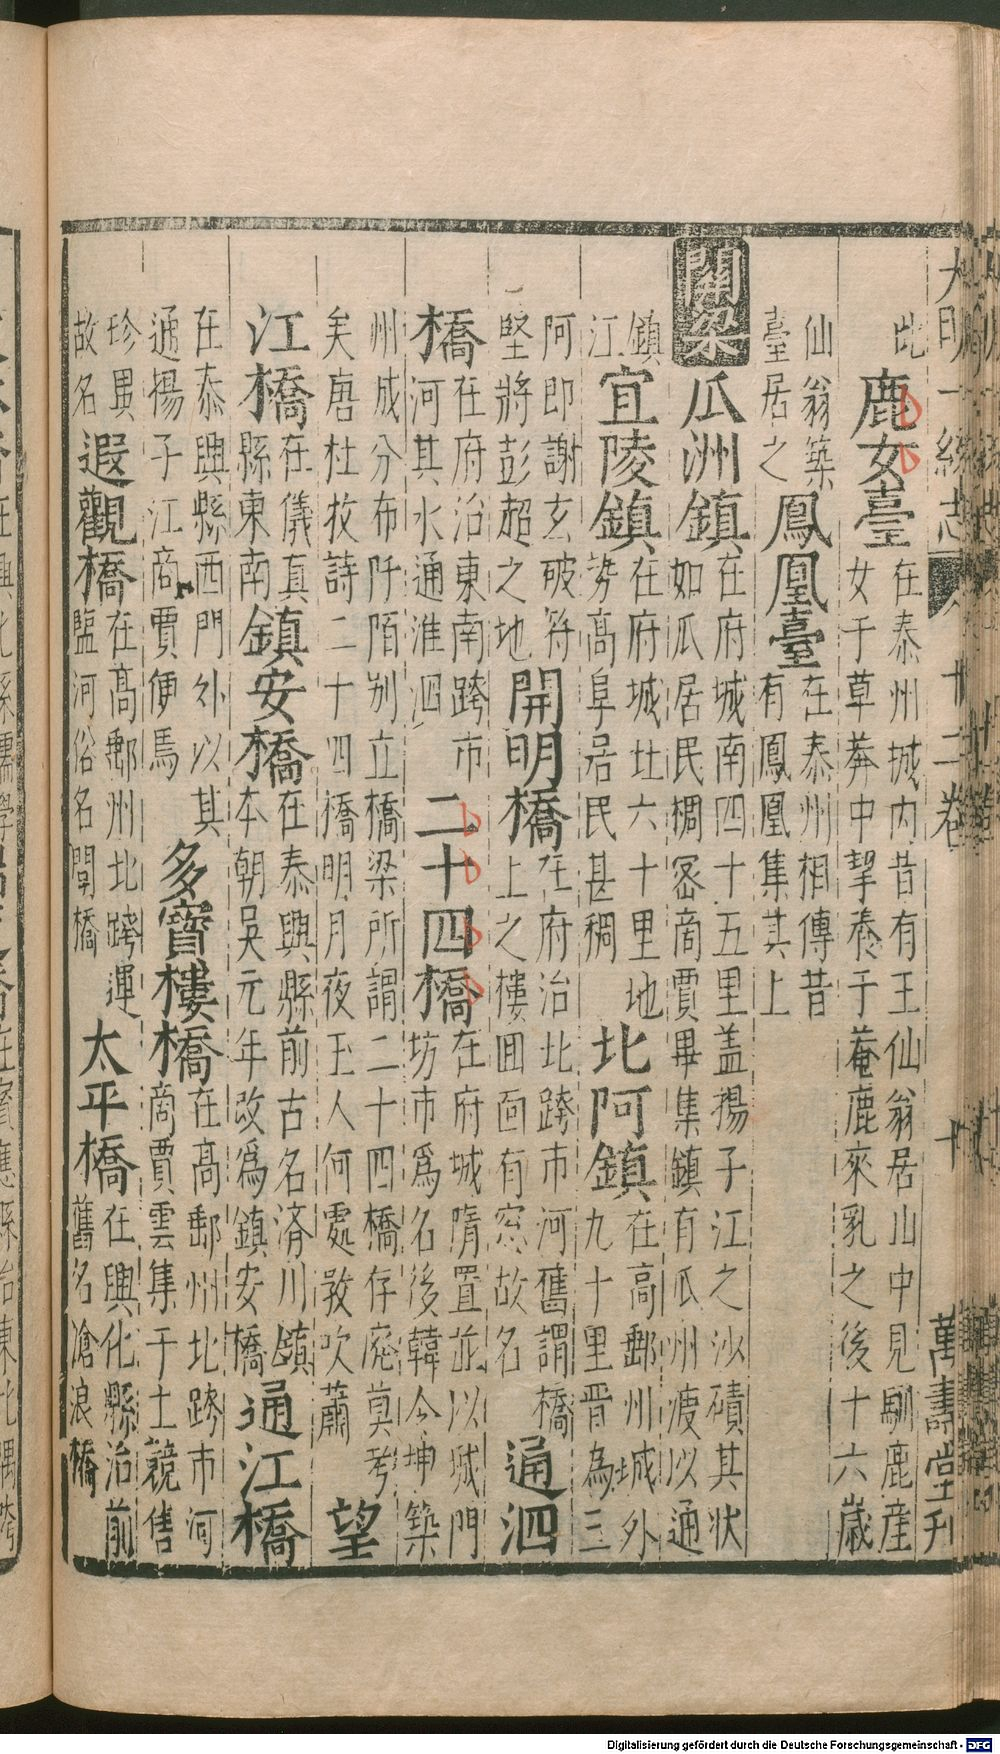 大明一統志 八 十二卷 十 萬壽堂刊
此
鹿女臺
在泰州城内昔有王仙翁居山中見馴鹿産
女于草莽中挈養于菴鹿來乳之後十六歲
仙翁築
臺居之
鳳凰臺
在泰州相傳昔
有鳳凰集其上
關梁
瓜洲鎮
在府城南四十五里蓋楊子江之沙磧其狀
如瓜居民稠密商賈畢集鎮有瓜州渡以通
鎮
江
宜陵鎮
在府城北六十里地
勢高阜居民甚稠
北阿鎮
在高郵州城外
九十里晋為三
阿即謝玄破苻
堅將彭超之地
開明橋
在府治北跨市河舊謂橋
上之樓四面有窓故名
通泗
橋
在府治東南跨市
河其水通淮泗
二十四橋
在府城隋置並以城門
坊市爲名後韓令坤築
州城分布阡陌别立橋梁所謂二十四橋存廢莫考
矣唐杜牧詩二十四橋明月夜玉人何處教吹簫
望
江橋
在儀真
縣東南
鎮安橋
在泰興縣前古名済川鎮
本朝吳元年改爲鎮安橋
通江橋
在泰興縣西門外以其
通揚子江商賈便馬
多寶樓橋
在髙郵州北跨市河
商賈雲集于土競售
珍異
故名
遐觀橋
在髙郵州北跨運
臨河俗名閘橋
太平橋
在興化縣治前
舊名滄浪橋
Digitalisierung gefördert durch die Deutsche Forschungsgemeinschaft - DFG